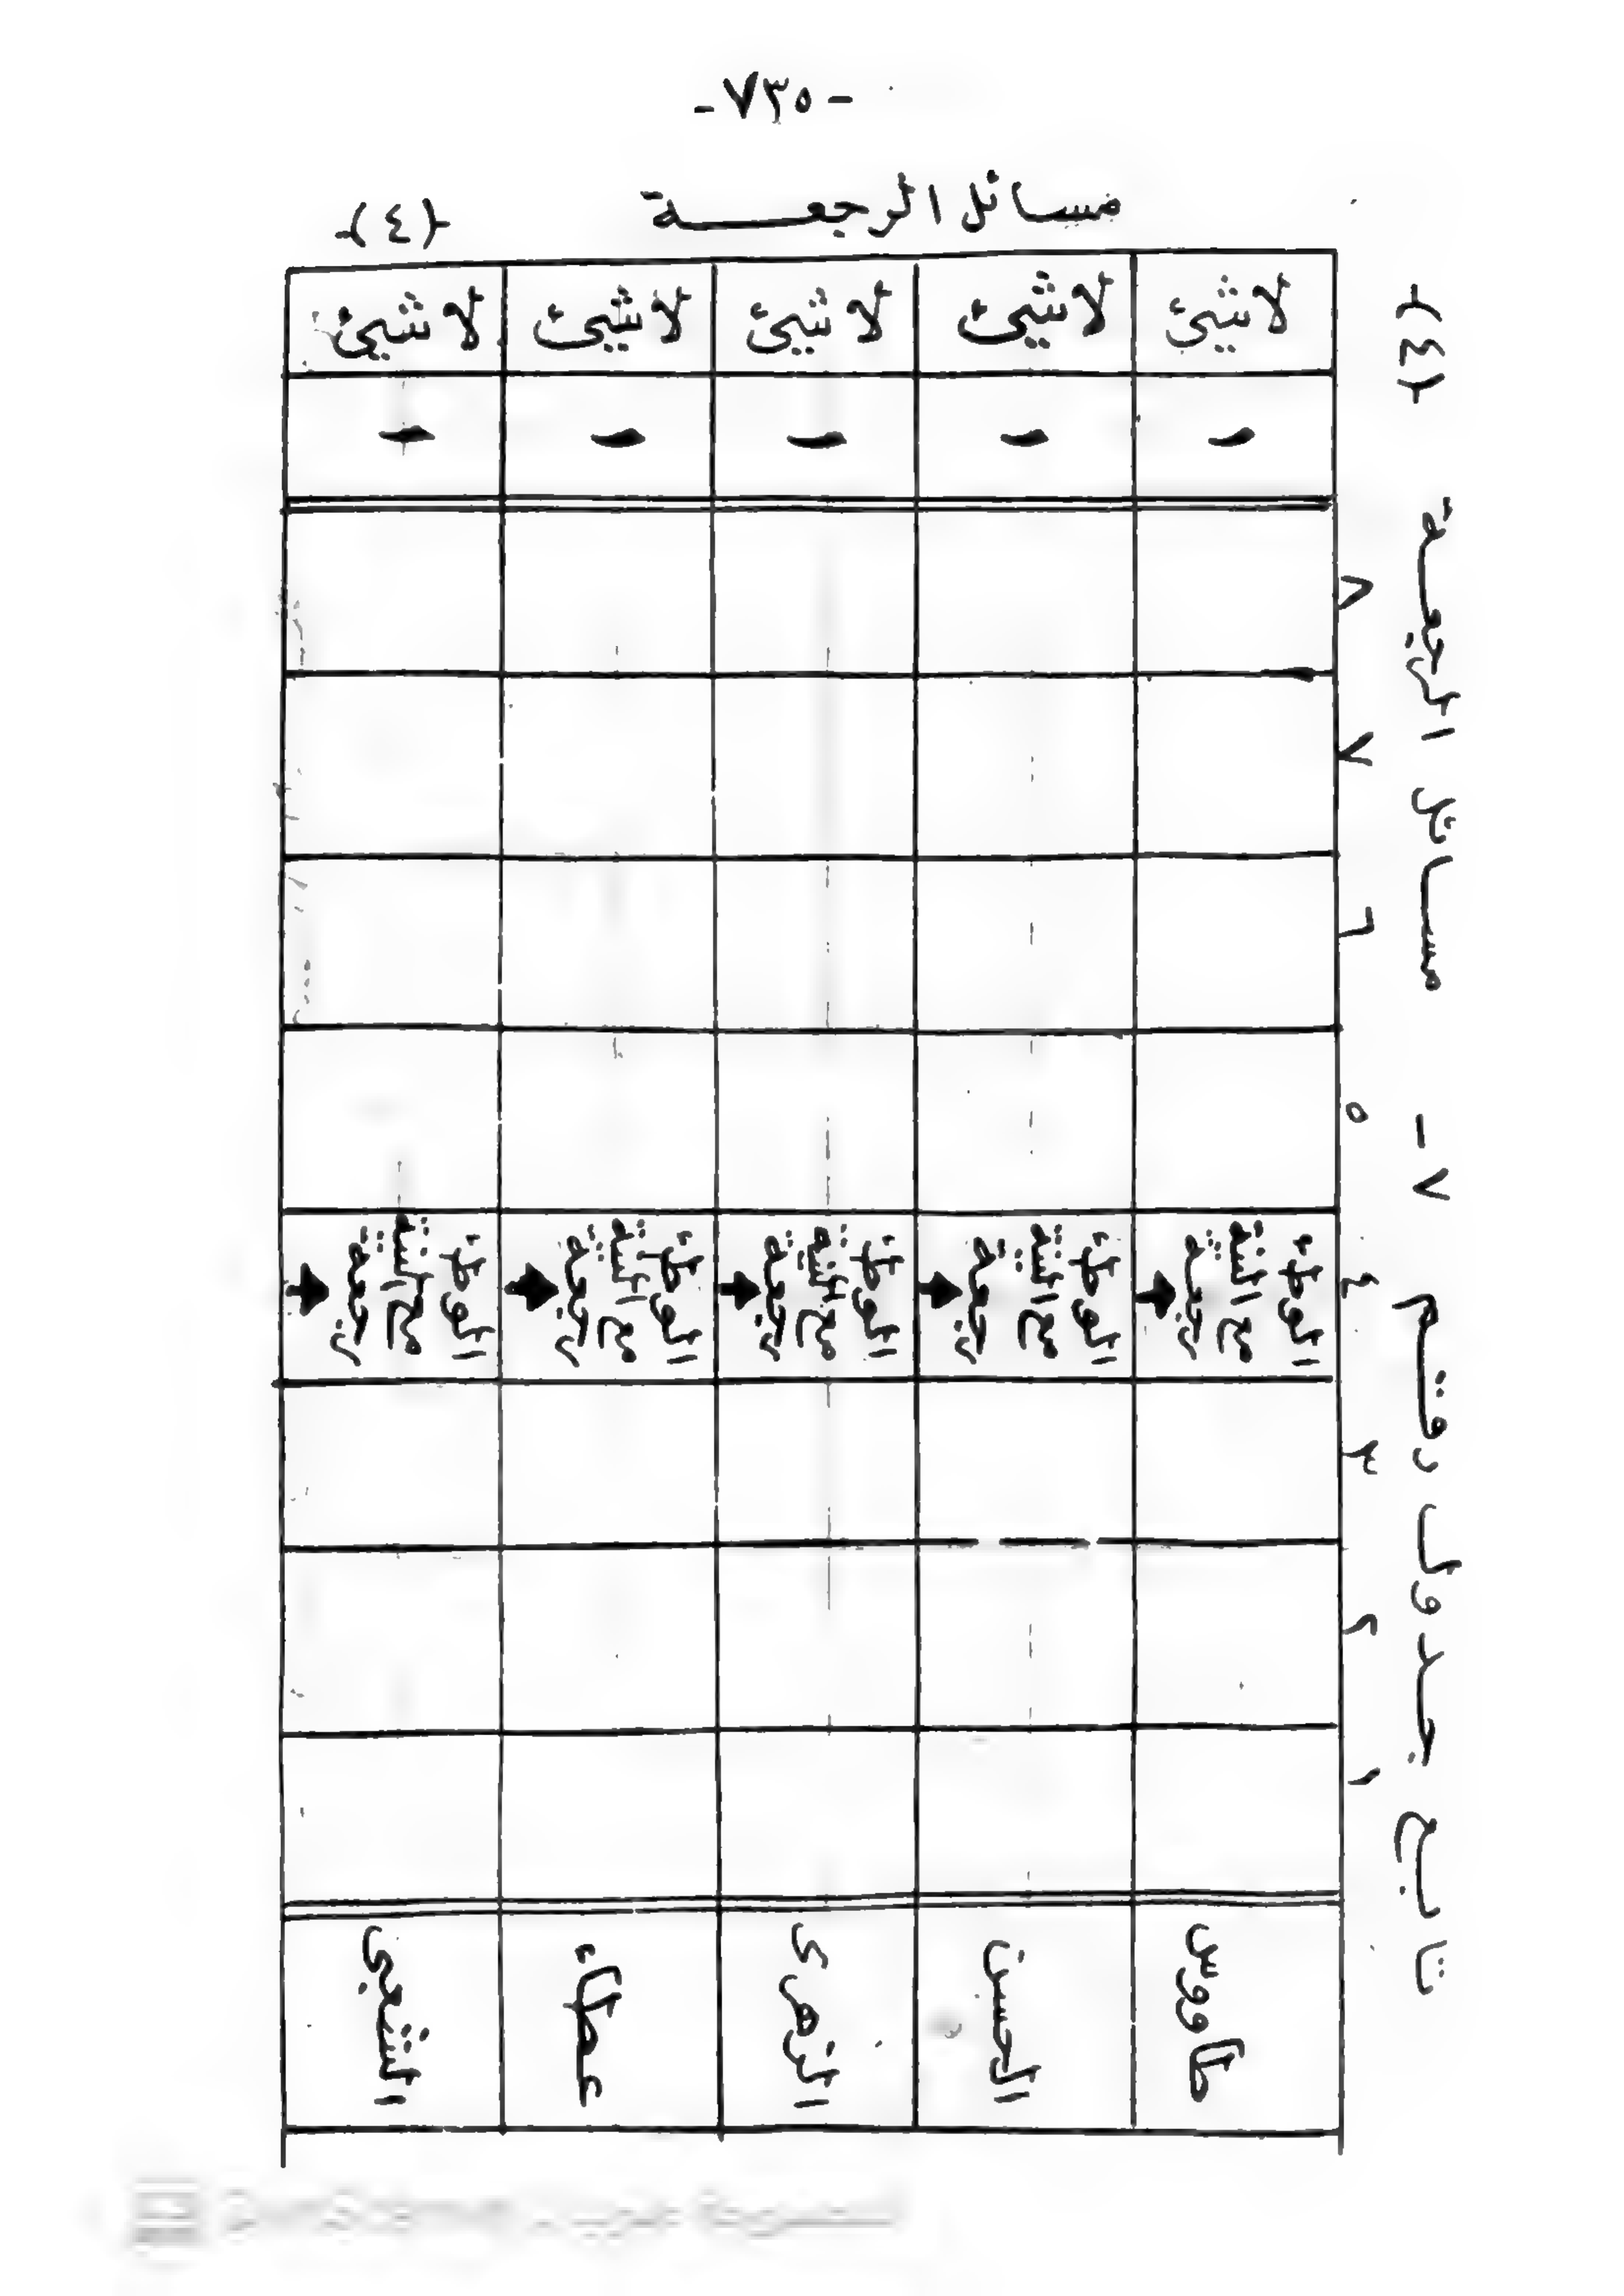 -٧٣٥-
مسائل الرجعة (٤)
تابع جدول رقم ٧ - مسائل الرجعة (٤)
١ ٢ ٣ ٤ ٥ ٦ ٧ ٨
طاووس الوطئ مع النية رجعة - لا شيئ
الحسن الوطئ مع النية رجعة - لا شيئ
الزهرى الوطئ مع النية رجعة - لا شيئ
عطاء الوطئ مع النية رجعة - لا شيئ
الشعبى الوطئ مع النية رجعة - لا شيئ